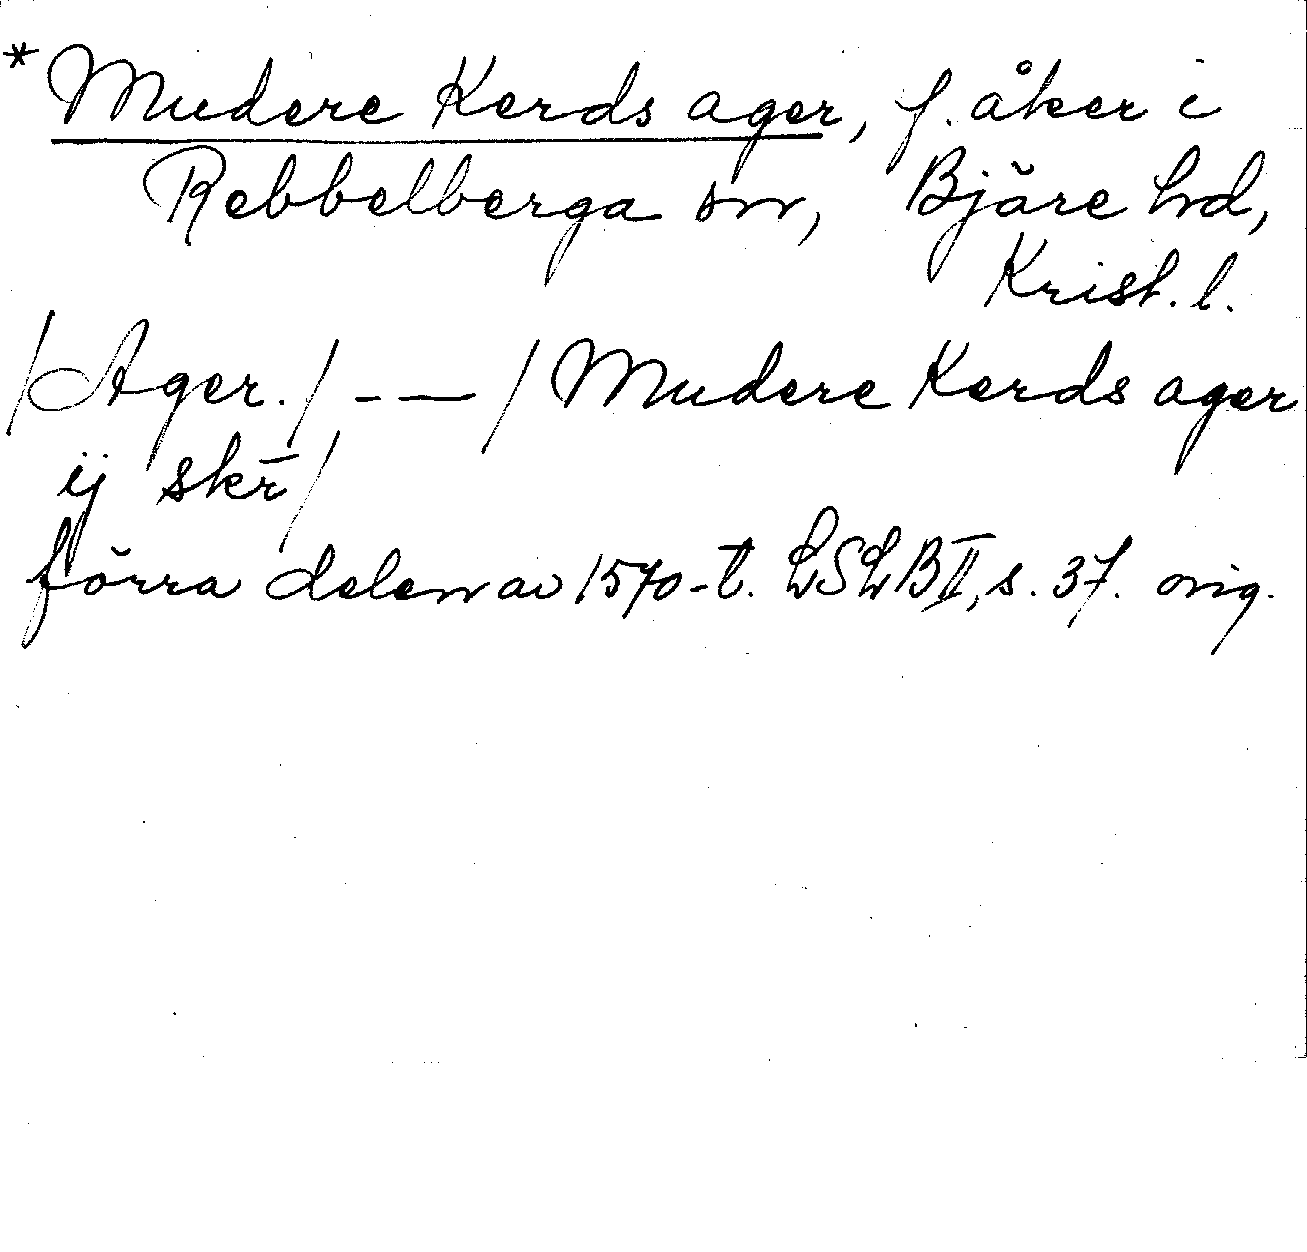 * Mudere Kerds ager, f. åker i
Rebbelberga sn, Bjäre hd,
Krist. l.
/Ager./ - — / Mudere Kerds ager
ij skr̄/
förra delen av 1570-t. LSLB II, s. 37. orig.